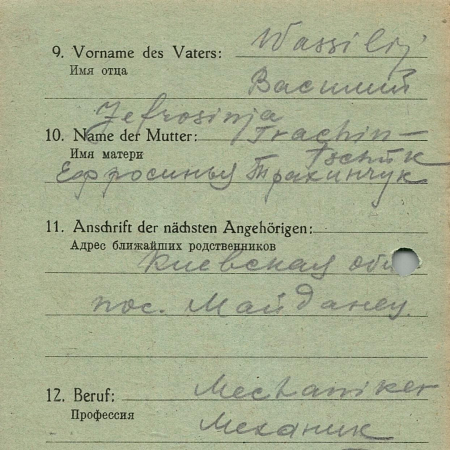 9. Vorname des Vaters: Wassilij
Имя отца
Василий
Jefrosinja
10. Name der Mutter: Trachin-
Имя матери
tschuk
Ефросинья Трахинчук
11. Anschrift der nächsten Angehörigen:
Адрес ближайших родственников
Киевская об
пос. Майданец
12. Beruf: Mechaniker
Профессия
Механик